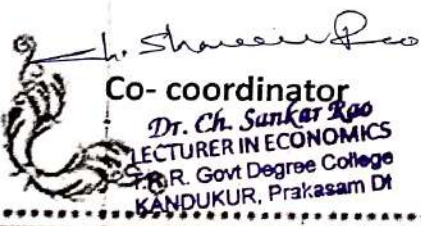 Ch. Shankar Rao
Co- coordinator
Dr. Ch. Sankar Rao
LECTURER IN ECONOMICS
T.R.R. Govt Degree College
KANDUKUR, Prakasam Dt